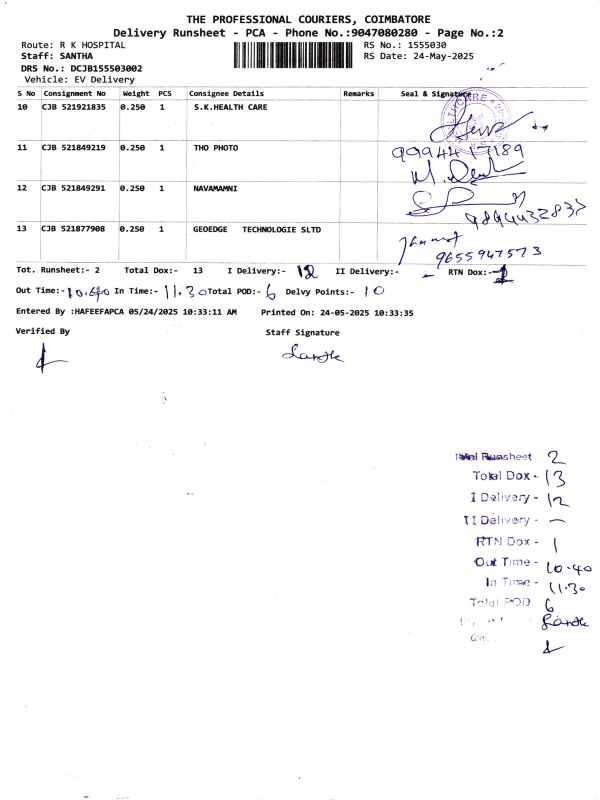 THE PROFESSIONAL COURIERS, COIMBATORE
Delivery Runsheet - PCA - Phone No.:9047080280 - Page No.:2
Route: R K HOSPITAL RS No.: 1555030
Staff: SANTHA RS Date: 24-May-2025
DRS No.: DCJB155503002
Vehicle: EV Delivery
S No Consignment No Weight PCS Consignee Details Remarks Seal & Signature
10 CJB 521921835 0.250 1 S.K.HEALTH CARE
11 CJB 521849219 0.250 1 THO PHOTO 9994417189
12 CJB 521849291 0.250 1 NAVAMAMNI
13 CJB 521877908 0.250 1 GEOEDGE TECHNOLOGIE SLTD
9655947573
Tot. Runsheet:- 2 Total Dox:- 13 I Delivery:- 12 II Delivery:- - RTN Dox:- 1
Out Time:- 10.40 In Time:- 11.30 Total POD:- 6 Delvy Points:- 10
Entered By :HAFEEFAPCA 05/24/2025 10:33:11 AM Printed On: 24-05-2025 10:33:35
Verified By Staff Signature
Santh
Runsheet 2
Total Dox - 13
I Delivery - 12
II Delivery - -
RTN Dox - 1
Out Time - 10.40
In Time - 11.30
Total POD 6